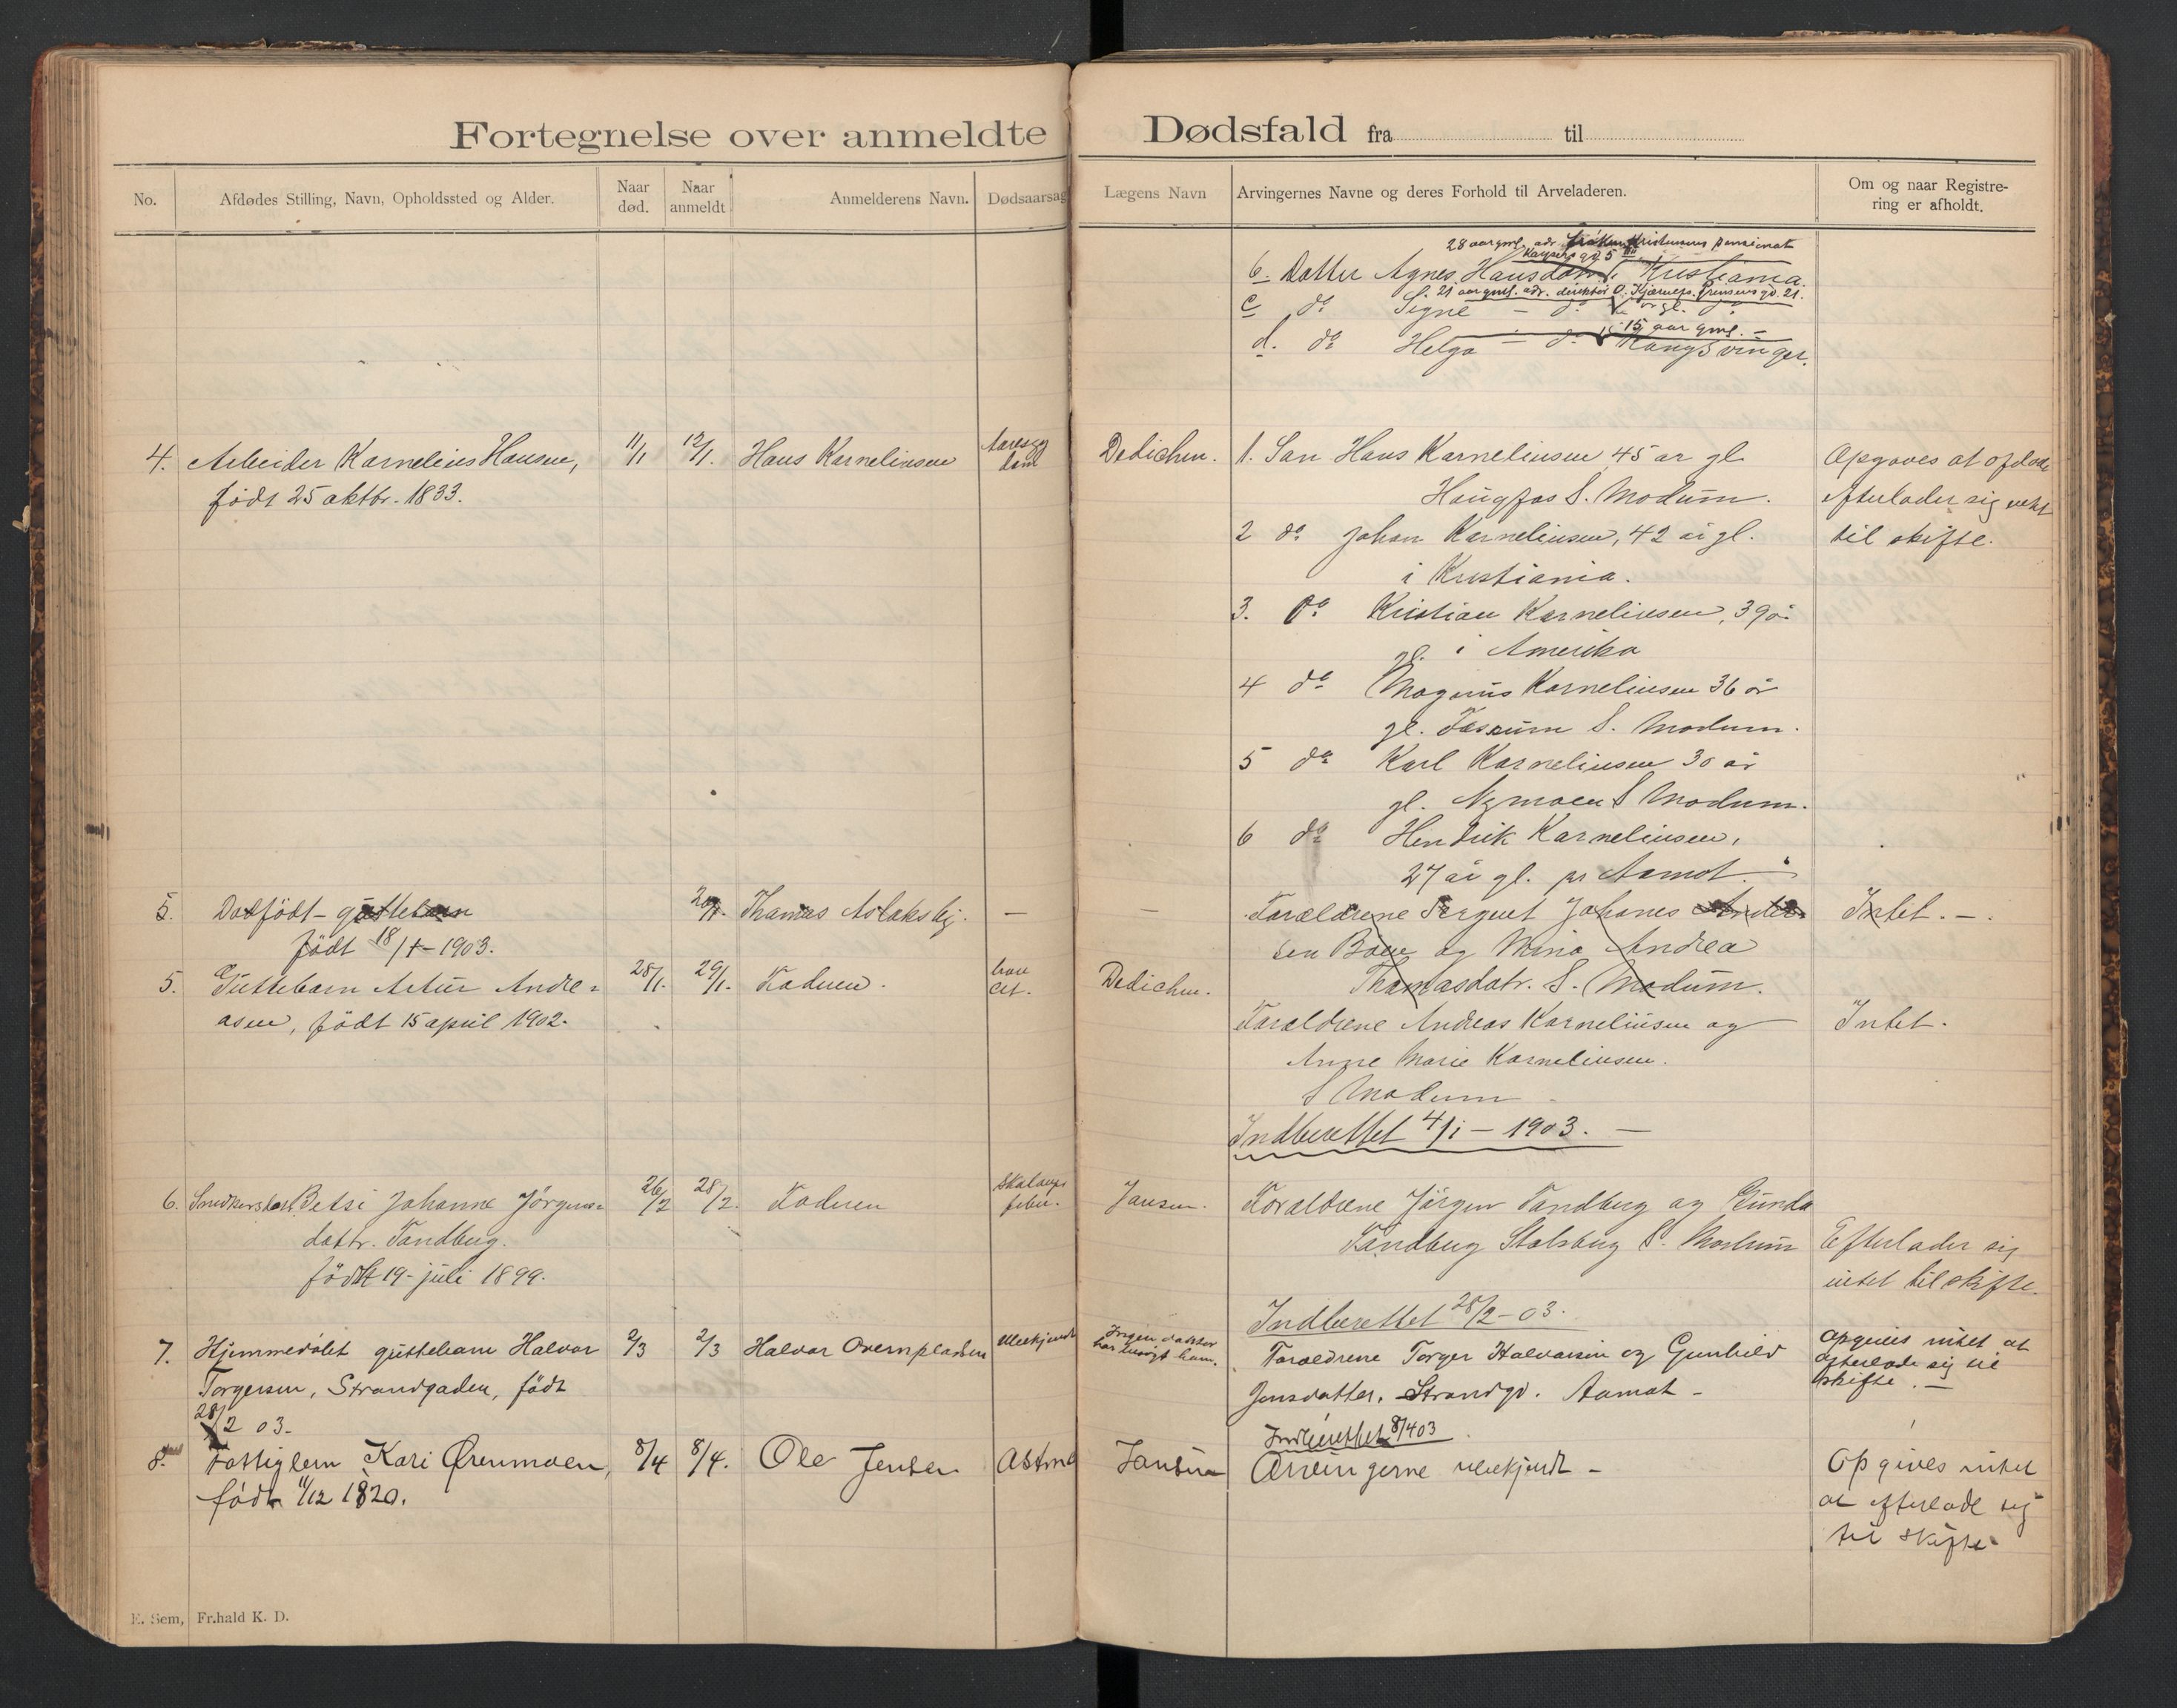 Fortegnelse over anmeldte Dødsfald fra til
No. Afdødes Stilling, Navn, Opholdssted og Alder. Naar død. Naar anmeldt Anmelderens Navn. Dødsaarsag Lægens Navn Arvingernes Navne og deres Forhold til Arveladeren. Om og naar Registrering er afholdt.
28 aar gml. adr. frøken Kristensens pensionat
6. Datter Agnes Hansdatr. i Kristiania.
21 aar gml. adr. direktør O. Kjærulfs. Grensengd. 21.
c do Signe — do
15 aar gml. —
d. do Helga — do Kongsvinger.
4. Arbeider Karnelius Hansen, 11/1 12/1. Hans Karneliusen Dedichen. 1. Søn Hans Karneliusen 45 år gl. Opgaves at
født 25 oktbr. 1833. Haugfos S. Modum. efterlader sig intet
2 do Johan Karneliusen, 42 år gl. til skifte.
i Kristiania.
3. do Kristian Karneliusen, 39 år
gl. i Amerika
4 do Magnus Karneliusen 36 år
gl. S. Modum.
5 do Karl Karneliusen 30 år
gl. Nymoen S Modum.
6 do Hendrik Karneliusen,
27 år gl. pr Aamot.
5. Dødfødt - guttebarn Thomas Aslaksby. — — Forældrene Sergent Johanes Ander-
født 18/1 - 1903. sen Boye og Mina Andrea Intet. -.
Thomasdatr. S. Modum.
5. Guttebarn Artur Andre= 28/1. 29/1. Faderen. Dedichen.
asen, født 15 april 1902. Forældrene Andreas Karneliusen og Intet.
Anne Marie Karneliusen.
S Modum
Indberettet 4/1 - 1903. —
6. Betsi Johanne Jörgens= 26/2 28/2. Faderen Skarlagensfeber. Jansen. Forældrene Jörgen Tandberg og Gunda
dattr. Tandberg. Tandberg Stalsberg S. Modum Efterlader sig
født 19 juli 1899. intet til skifte.
Indberettet 28/2 - 03.
7. Hjemmedøbt guttebarn Halvor 2/3 2/3 Halvor Overnpladsen Ubekjendt Ingen doktor har besøgt ham. Forældrene Torger Halvorsen og Gunhild Opgives intet at
Torgersen, Strandgaden, født Jensdatter. Strandgd. Aamot - efterlade sig til
28/2 03. skifte. —
Indberettet 8/4 03
8. Fattiglem Kari Ørenmoen, 8/4 8/4. Ole Jensen Astma Jansen Arvingerne ubekjendt - Opgives intet
født 11/12 1820. at efterlade sig
til skifte
E. Sem, Fr.hald K. D.